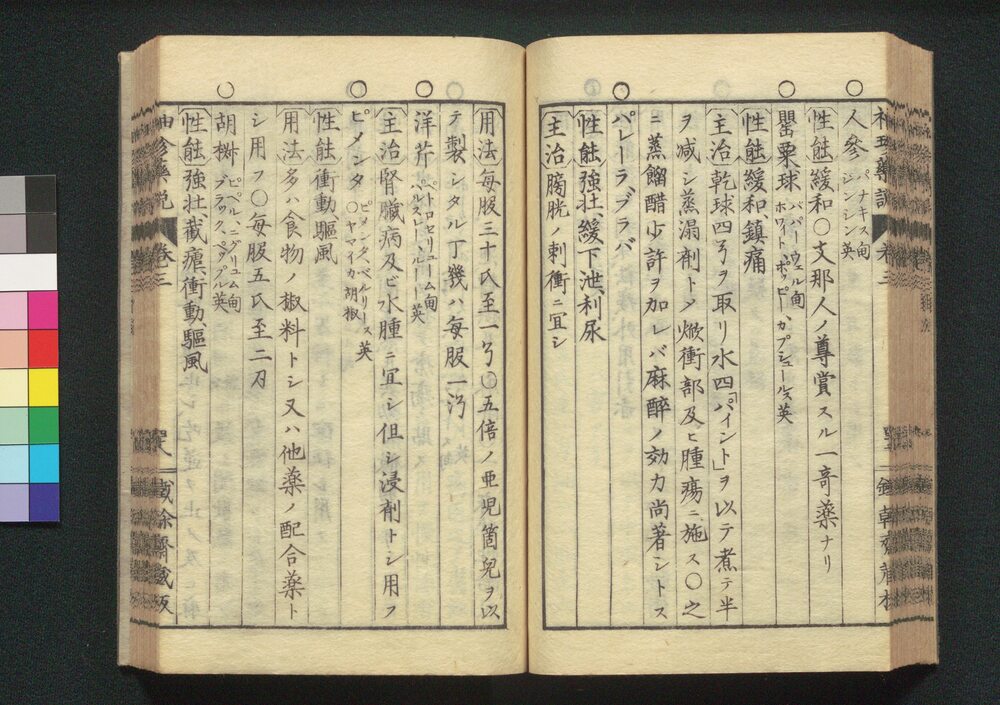 人參 パナキス甸
シンシン英
性䏻緩和〇支那人ノ尊賞スル一奇薬ナリ
罌粟球 パパーウェル甸
ホワイト、ポッピー、カプシュールス英
性䏻緩和鎮痛
主治乾球四ヲ取リ水四「パイント」ヲ以テ煮テ半
ヲ减シ蒸溻剤トノ焮衝部及ヒ腫瘍ニ施ス〇之
ニ蒸餾醋少許ヲ加レバ麻醉ノ効力尚著シトス
パレーラブラバ
性䏻強壮、緩下泄、利尿
主治膀胱ノ刺衝ニ宜シ
用法每服三十氐至一〇五倍ノ亜児箇児ヲ以
テ製シタル丁幾ハ每服一
洋芹 ペトロセリューム甸
主治腎臓病及ビ水腫ニ宜シ但シ浸剤トシ用フ
ピメンタ ピメンタ、ベルリース英
〇ヤマイカ胡椒
性䏻衝動、驅風
用法多ハ食物ノ椒料トシ又ハ他薬ノ配合薬ト
シ用フ〇每服五氐至二刄
胡椒 ピペル、ニグリュム甸
ブラック、ペッブル英
性䏻強壮、截瘧、衝動、驅風
袖珍薬説 卷三